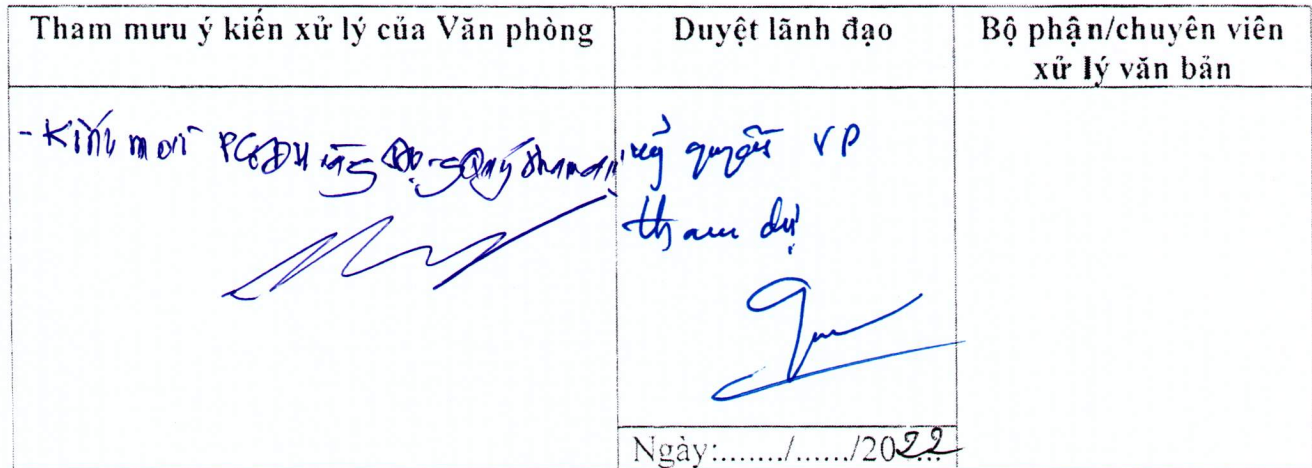 Tham mưu ý kiến xử lý của Văn phòng
Duyệt lãnh đạo
Bộ phận/chuyên viên
xử lý văn bản
- Kính mời PGĐ Quý tham dự
uỷ quyền VP
tham dự
Ngày:......../....../2022